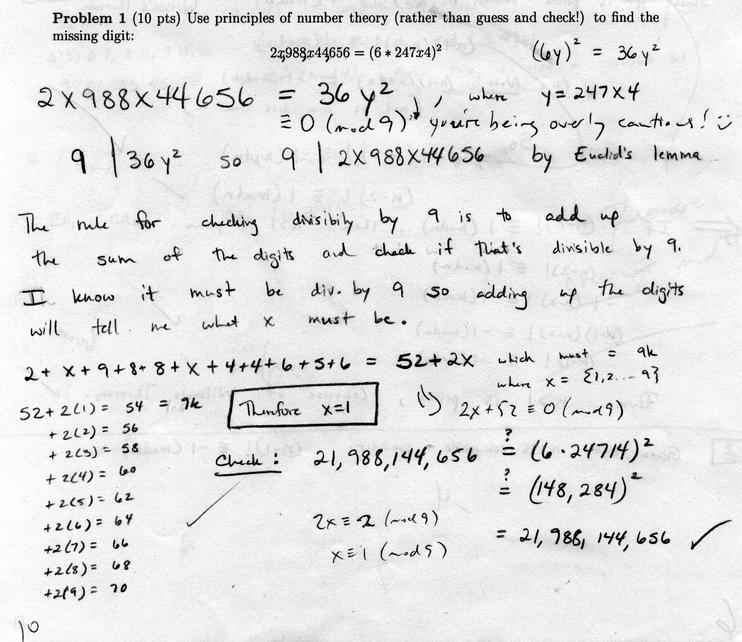 Problem 1 (10 pts) Use principles of number theory (rather than guess and check!) to find the
missing digit:
2x988x44656 = (6 * 247x4)²
(6y)² = 36y²
2x988x44656 = 36y², where y=247x4
≡0 (mod 9) you're being overly cautious! :)
9 | 36y² so 9 | 2x988x44656 by Euclid's lemma
The rule for checking divisibily by 9 is to add up
the sum of the digits and check if that's divisible by 9.
I know it must be div. by 9 so adding up the digits
will tell me what x must be.
2+ x+9+8+8+x+4+4+6+5+6 = 52+2x which must = 9k
where x = {1,2...9}
52+2(1) = 54 = 9k
Therefore x=1
2x+52 ≡ 0 (mod 9)
+2(2) = 56
+2(3) = 58
+2(4) = 60
+2(5) = 62
+2(6) = 64
+2(7) = 66
+2(8) = 68
+2(9) = 70
Check: 21,988,144,656 ≟ (6·24714)²
≟ (148,284)²
= 21,988,144,656 ✓
2x ≡ 2 (mod 9)
x ≡ 1 (mod 9)
10